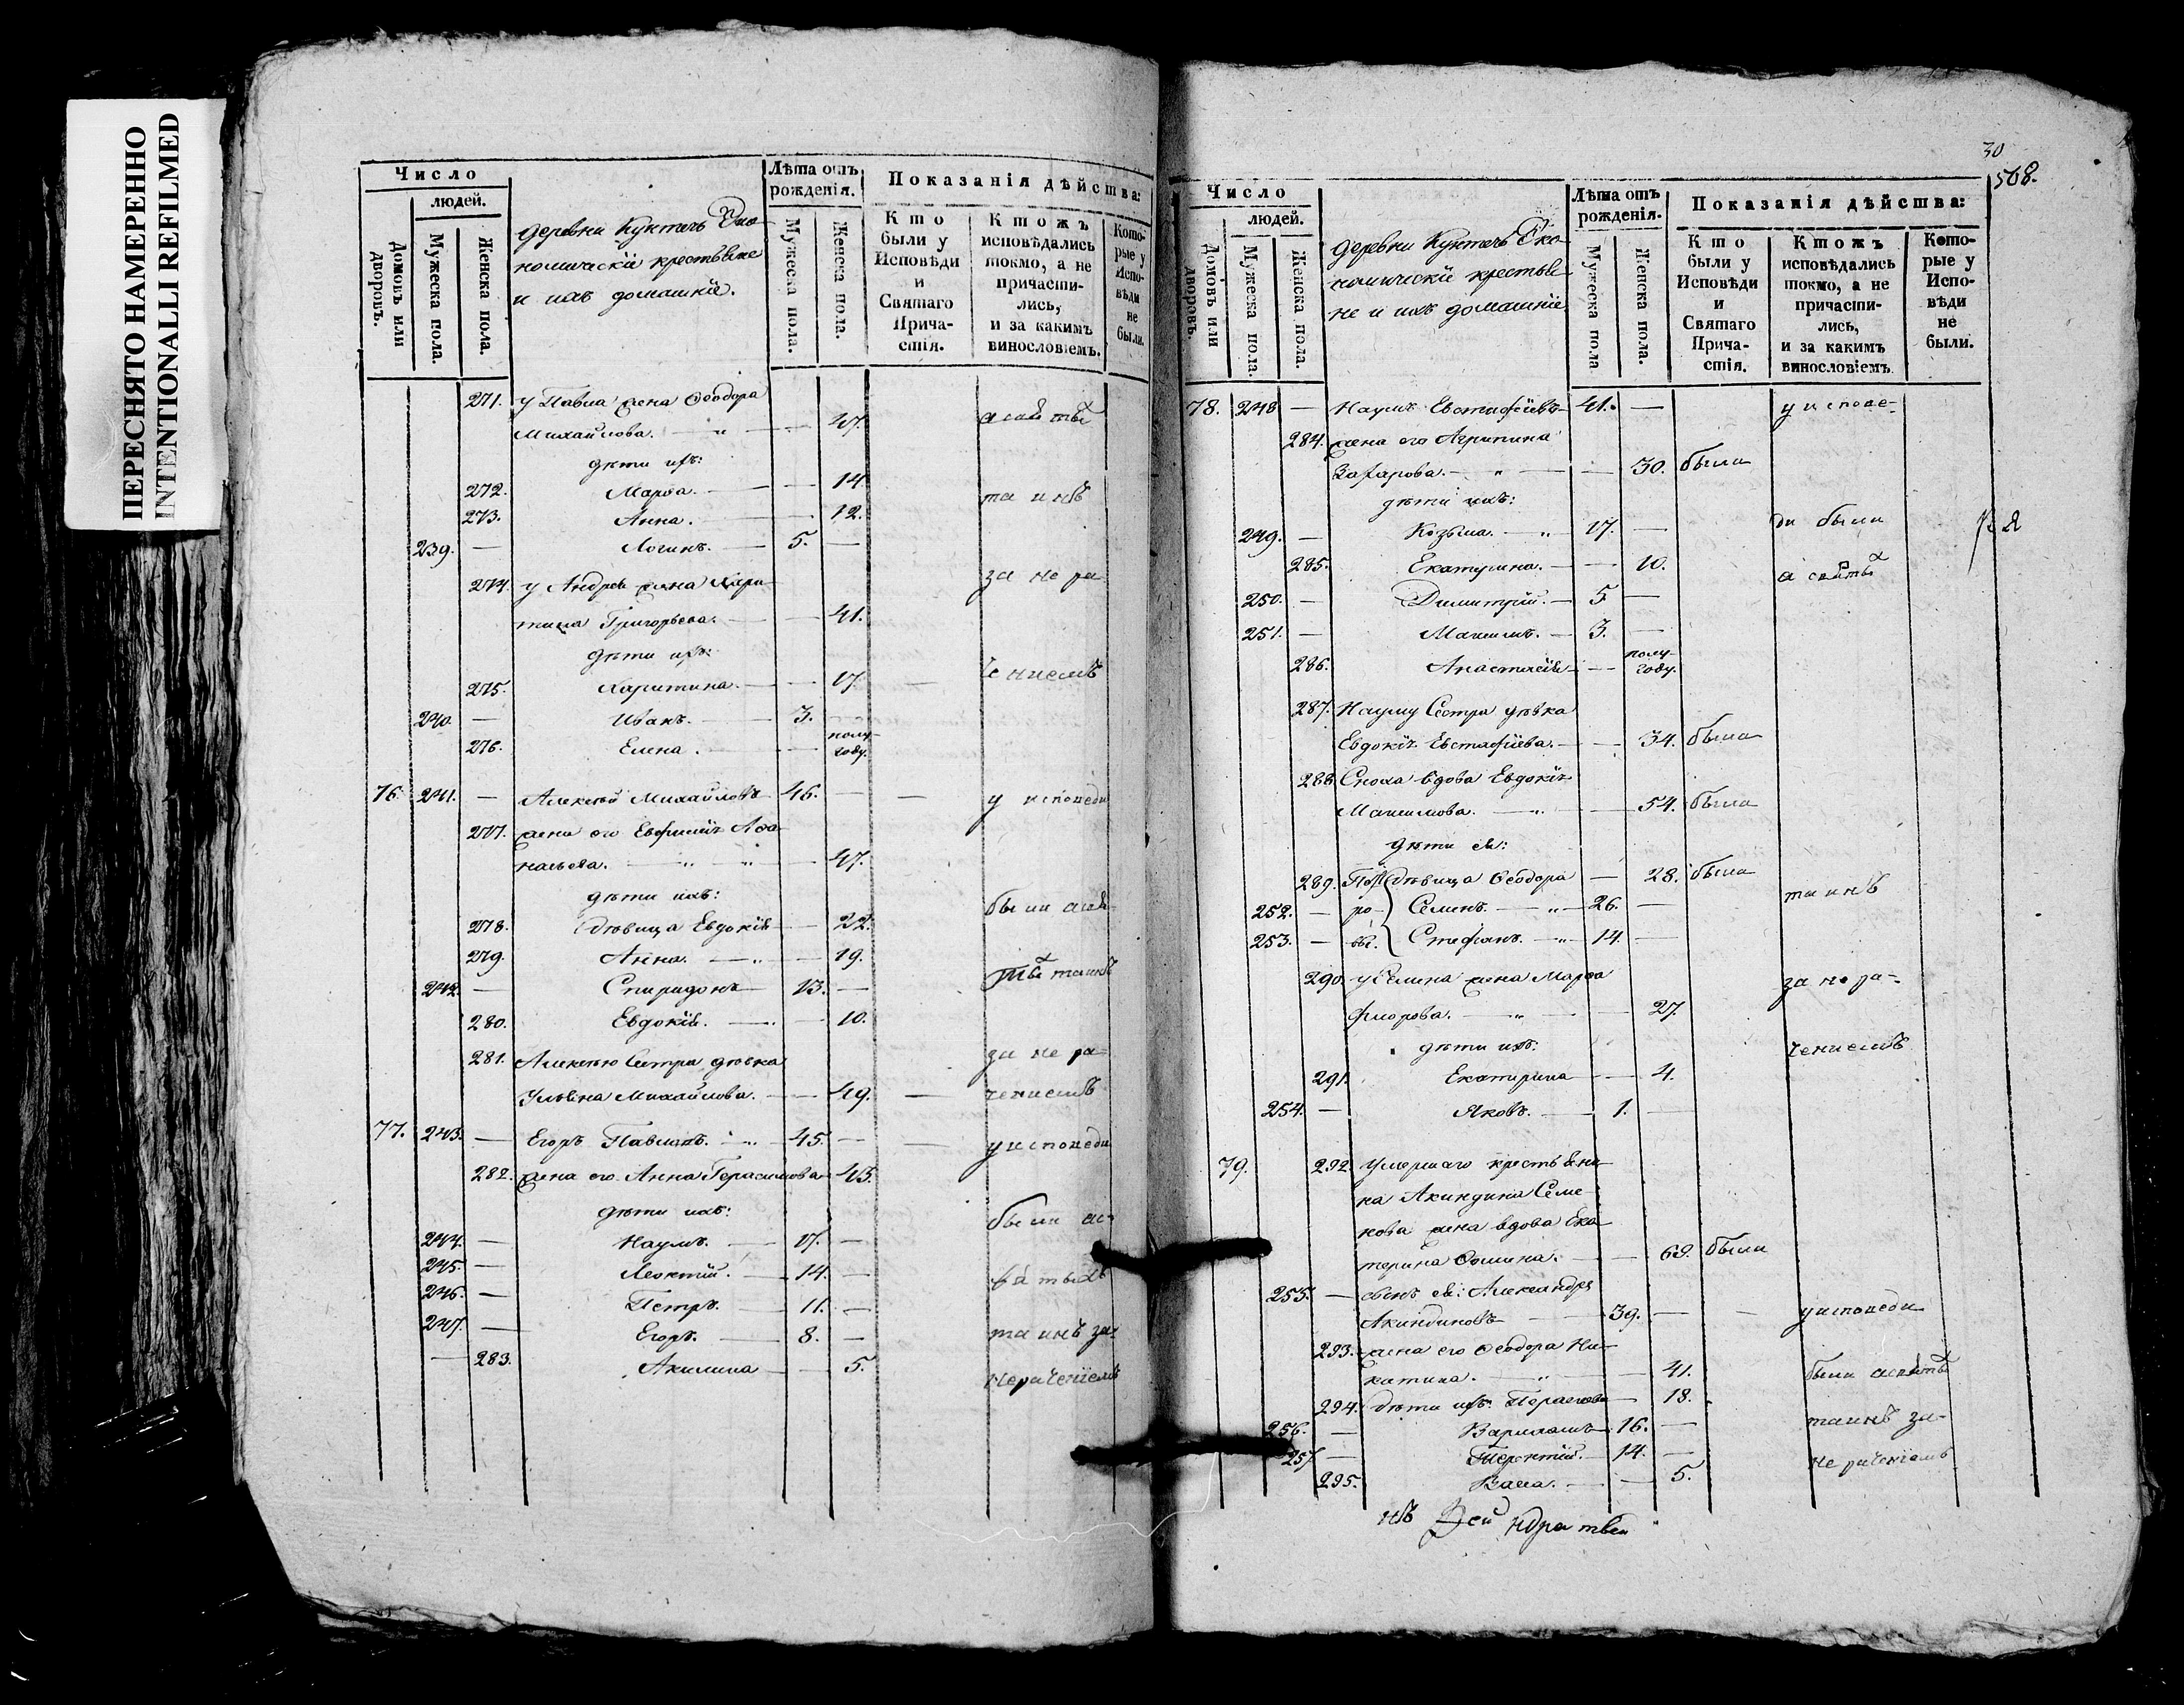 ПЕРЕСНЯТО НАМЕРЕННО
INTENTIONALLI REFILMED
Число
людей.
Домовъ или дворовъ.
Мужеска пола.
Женска пола.
деревни Куктачъ Эко-
номическіи крестьяне
и ихъ домашніе.
Лѣта отъ рожденія.
Мужеска пола.
Женска пола.
Показанія дѣйства:
Кто были у Исповѣди и Святаго Прича- стія.
Ктожъ исповѣдались токмо, а не причасти- лись, и за какимъ винословіемъ.
Кото- рые у Испо- вѣди не были.
271. у Павла жена Ѳеодора
Михайлова. 47. а святыхъ
дѣти ихъ:
272. Марѳа. 14 таинъ
273. Анна. 12.
239. — Логинъ. 5. —
274. у Андрея жена Хари-
тина Григорьева. 41. за нера-
дѣти ихъ:
275. Харитина. 17. ченіемъ
240. — Иванъ. 3.
276. Елена. полу- году.
76. 241. — Алексѣй Михайловъ 46. — у исповеди
277. жена его Евфимія Аѳа-
насьева. 47.
дѣти ихъ:
278. дѣвица Евдокія 22. были а свя-
279. Анна. 19.
242. — Спиридонъ 13. — тыхъ таинъ
280. Евдокія. 10.
281. Алексѣю Сестра дѣвка за нера-
Ульяна Михайлова. 49. ченіемъ
77. 243. — Егоръ Павловъ. 45. — у исповеди
282. жена его Анна Герасимова 45.
дѣти ихъ:
244. — Наумъ. 17. — были ас-
245. — Леонтій. 14. — вятыхъ
246. — Петръ. 11. —
247. — Егоръ. 8. — таинъ за-
283. Акилина 5. нераченіемъ
30
568.
Число
людей.
Домовъ или дворовъ.
Мужеска пола.
Женска пола.
деревни Куктачъ Эко-
номическіи крестья-
не и ихъ домашніе
Лѣта отъ рожденія.
Мужеска пола
Женска пола.
Показанія дѣйства:
Кто были у Исповѣди и Святаго Прича- стія.
Ктожъ исповѣдались токмо, а не причасти- лись, и за какимъ винословіемъ.
Кото- рые у Испо- вѣди не были.
78. 248 — Наумъ Евстафіевъ 41. — у испове-
284. жена его Агрипина
Захарова. 30. была
дѣти ихъ:
249. — Козьма. 17. — ди были
285. Екатерина. 10. а святыхъ
250. — Димитрій. 5 —
251. — Максимъ. 3. —
286. Анастасія полу- году.
287. Науму Сестра дѣвка
Евдокія Евстафіева. 34. была
288. Сноха вдова Евдокія
Максимова. 54. была
дѣти ея:
289. дѣвица Ѳеодора 28. была
252. — Семенъ. 26. — таинъ
253. — Стефанъ. 14. —
290. у Семена жена Марѳа за нера-
Флорова. 27.
дѣти ихъ: ченіемъ
291. Екатерина 4.
254. — Яковъ. 1.
79. 292. умершаго крестьяни-
на Акиндина Семе-
нова жена вдова Ека-
терина Ѳомина. 69. была
255. — сынъ ея: Александръ
Акиндиновъ 39. — у исповеди
293. жена его Ѳеодора Ни-
китина. 41. были а святыхъ
294. дѣти ихъ: Параскева 18.
256. — Варлаамъ 16. — таинъ за-
257 — Терентій. 14. —
295. Васса. 5. нераченіемъ